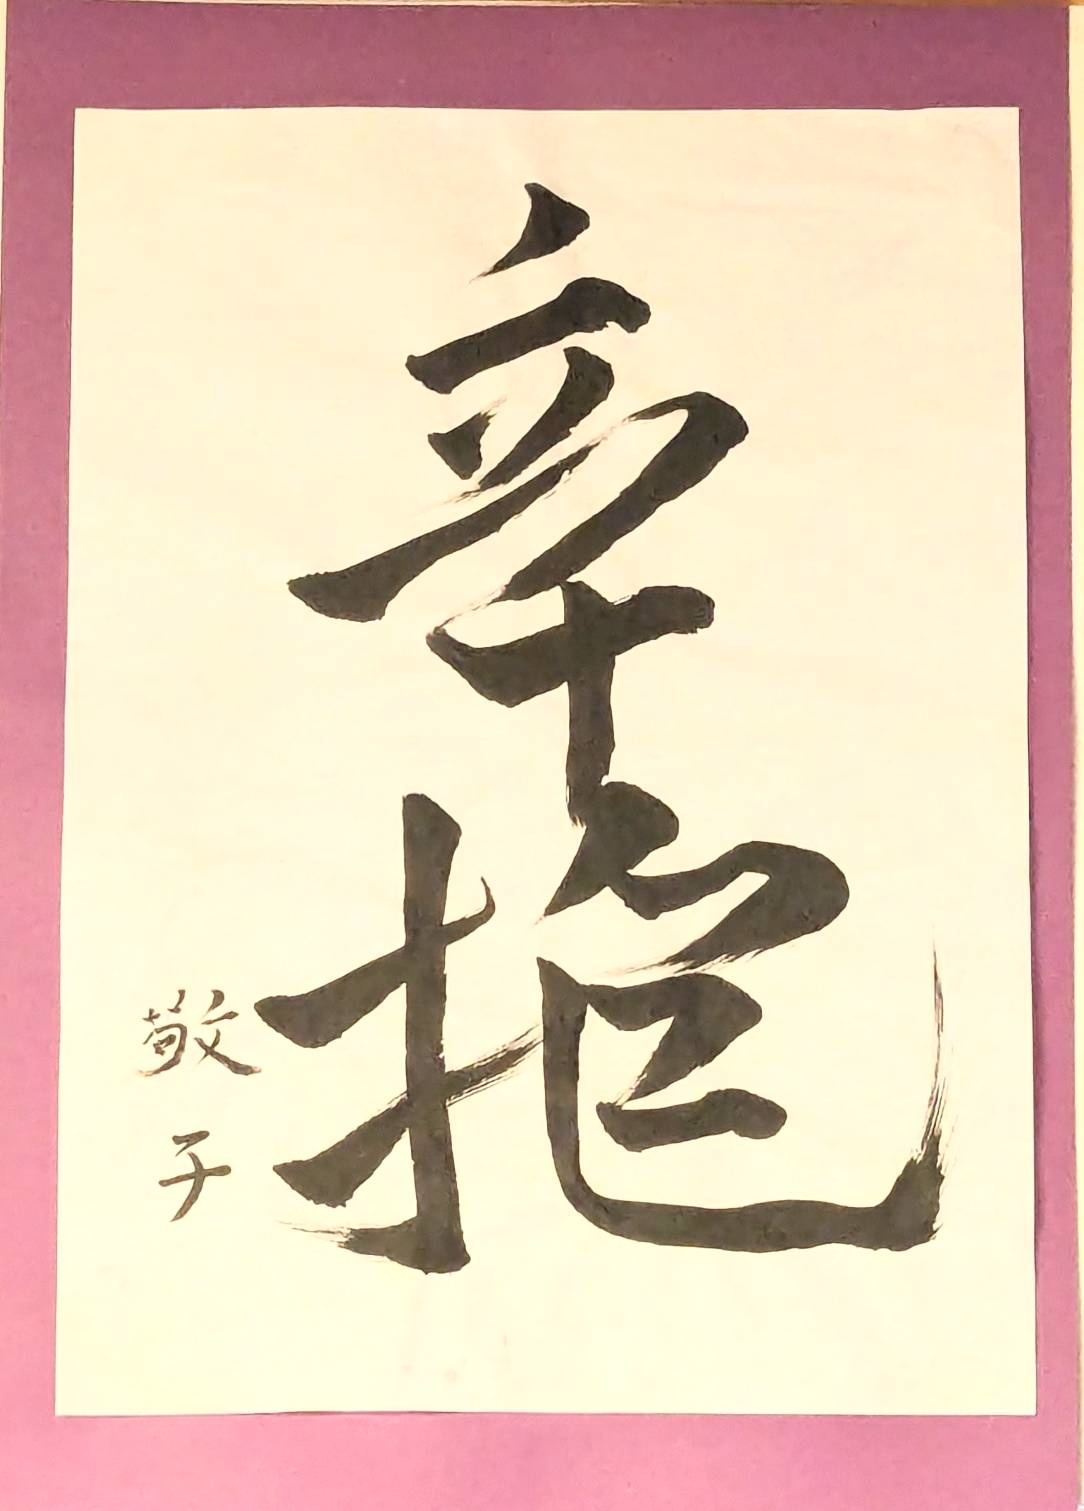 辛抱
敬子